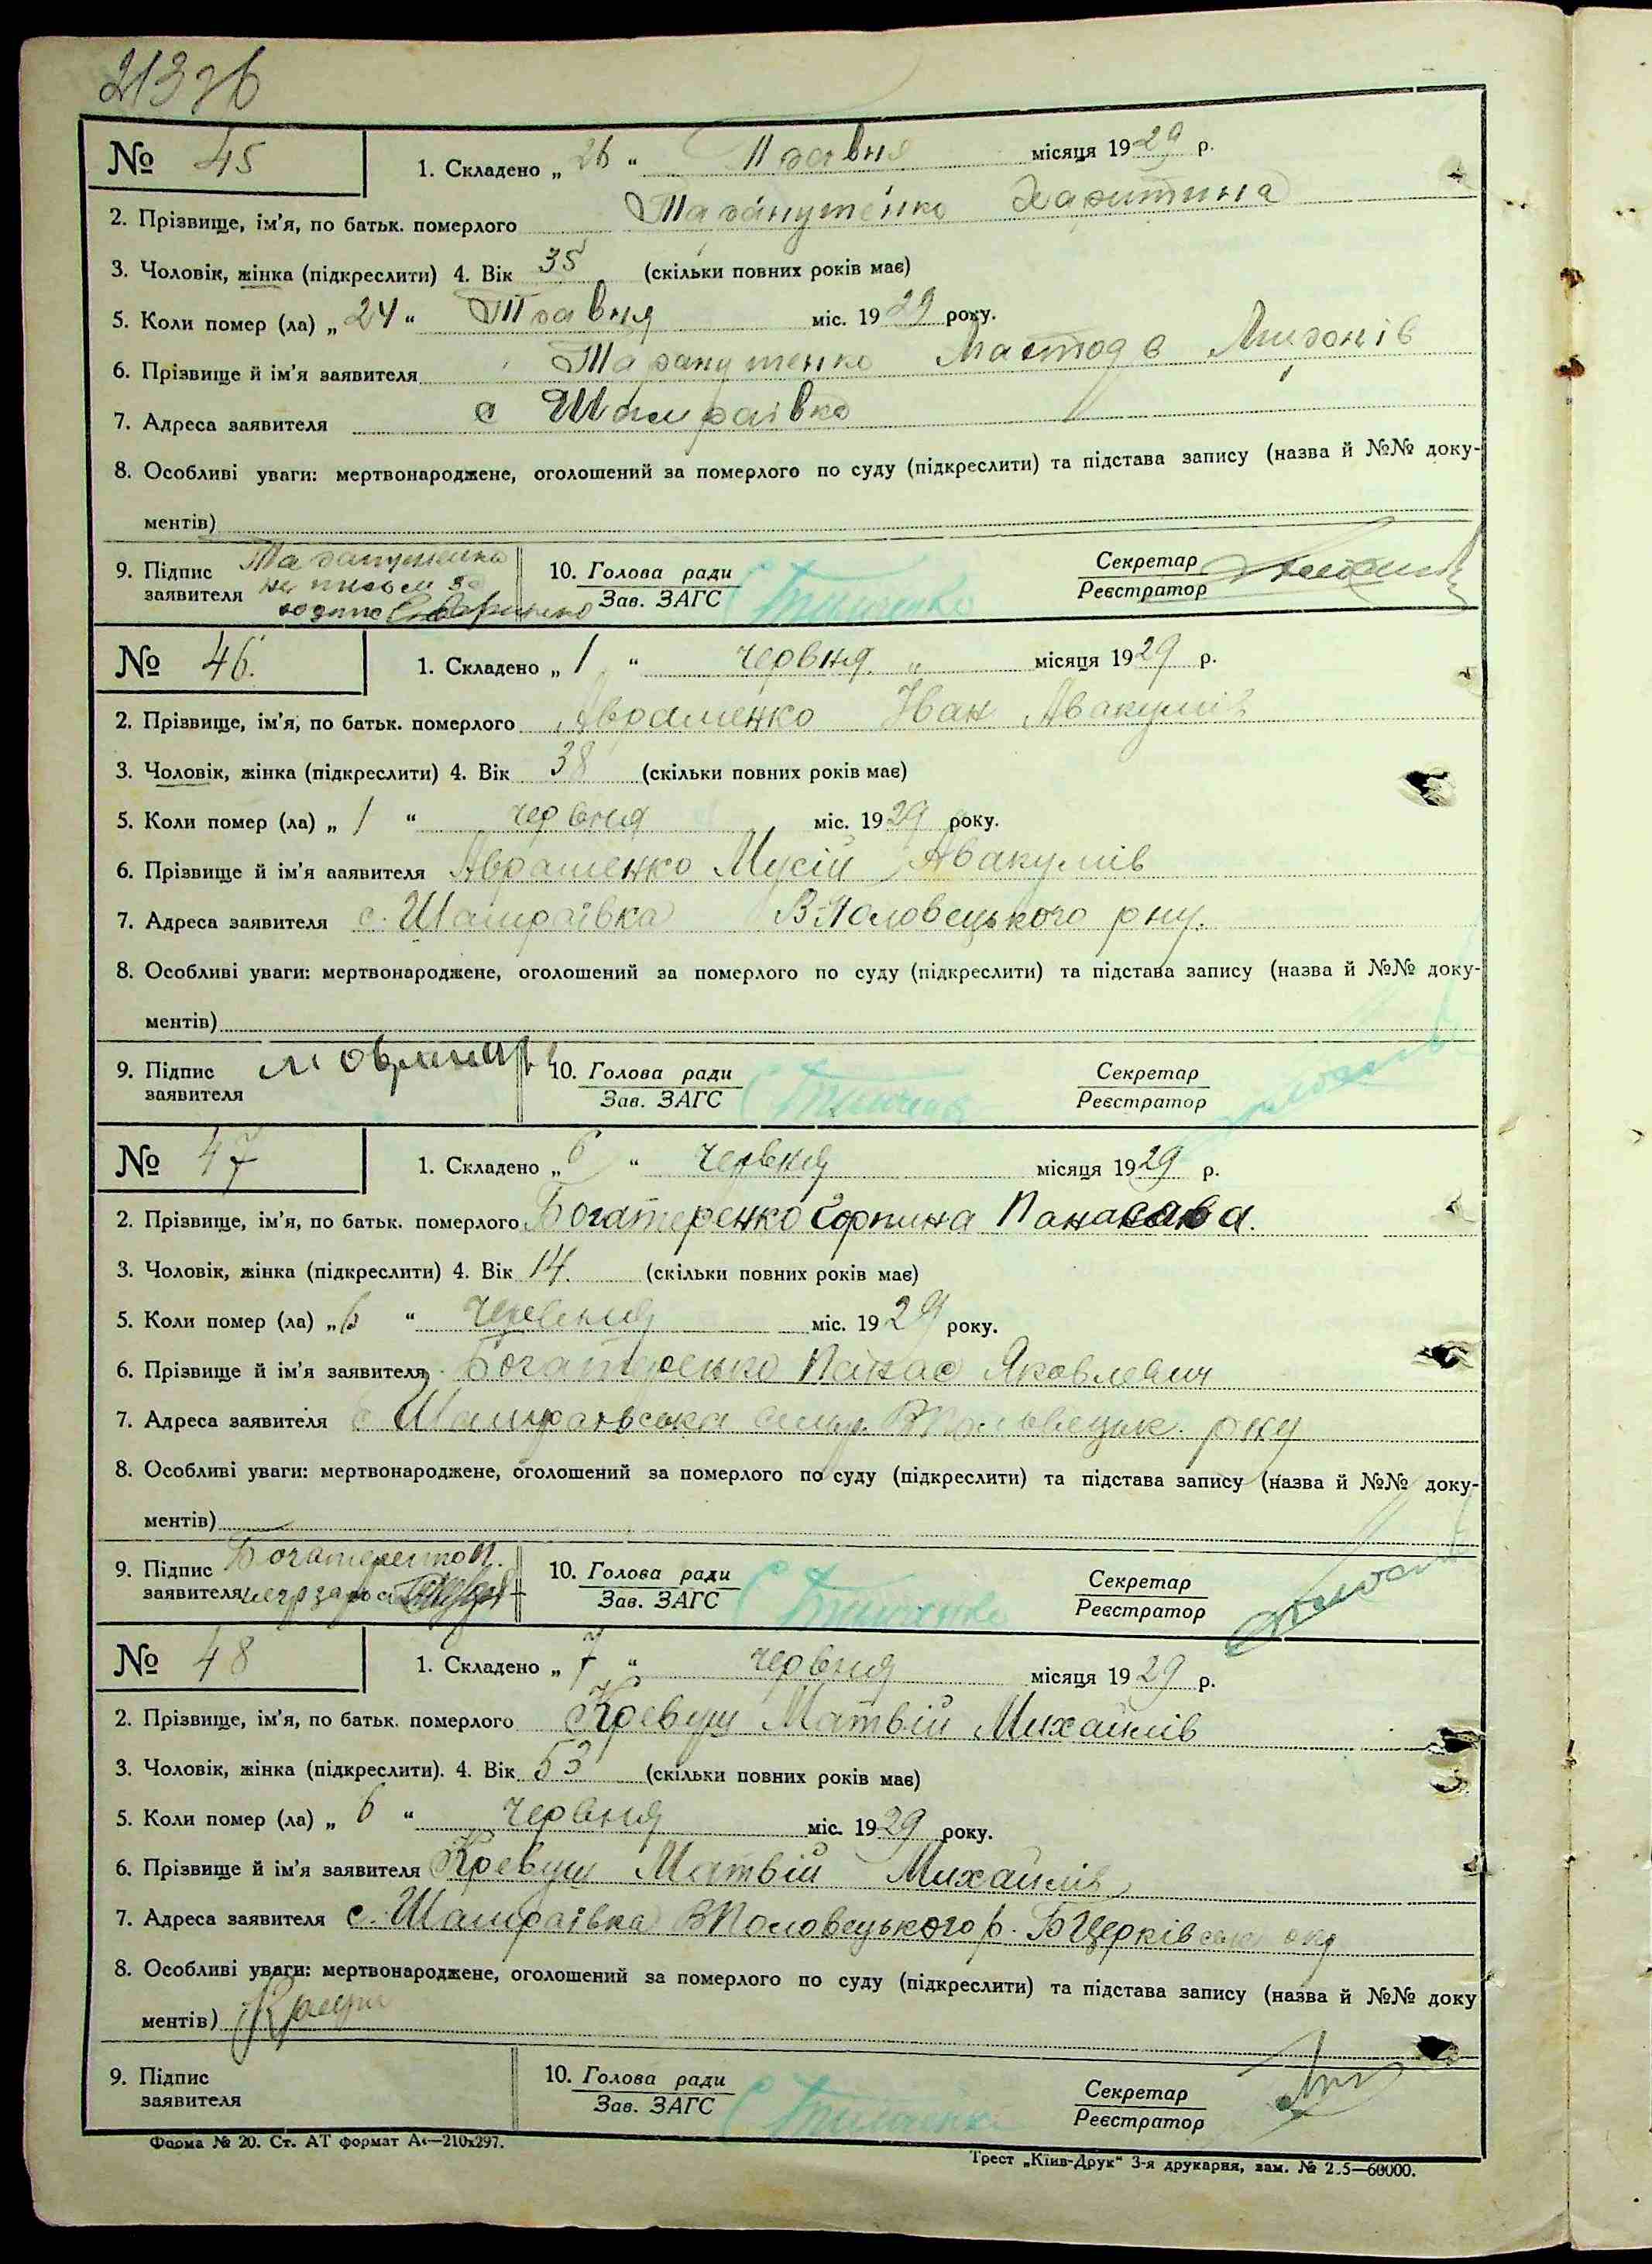 213зв
№ 45
1. Складено „ 26 “ Травня місяця 1929 р.
2. Прізвище, ім'я, по батьк. померлого Таранутенко Харитина
3. Чоловік, жінка (підкреслити) 4. Вік 35 (скільки повних років має)
5. Коли помер (ла) „ 24 “ Травня міс. 1929 року.
6. Прізвище й ім'я заявителя Таранутенко
7. Адреса заявителя с Шамраівка
8. Особливі уваги: мертвонароджене, оголошений за померлого по суду (підкреслити) та підстава запису (назва й №№ доку-
ментів)
9. Підпис заявителя Таранутенко
10. Голова ради
Зав. ЗАГС
Секретар
Реєстратор
№ 46.
1. Складено „ 1 “ червня місяця 1929 р.
2. Прізвище, ім'я, по батьк. померлого Авраменко Іван Авакумів
3. Чоловік, жінка (підкреслити) 4. Вік 38 (скільки повних років має)
5. Коли помер (ла) „ 1 “ червня міс. 1929 року.
6. Прізвище й ім'я ааявителя Авраменко Мусій Авакумів
7. Адреса заявителя с. Шамраївка ВПоловецького рну.
8. Особливі уваги: мертвонароджене, оголошений за померлого по суду (підкреслити) та підстава запису (назва й №№ доку-
ментів)
9. Підпис
заявителя
10. Голова ради
Зав. ЗАГС
Секретар
Реєстратор
№ 47
1. Складено „ 6 “ червня місяця 1929 р.
2. Прізвище, ім'я, по батьк. померлого Богатеренко Горпина Панасова.
3. Чоловік, жінка (підкреслити) 4. Вік 14. (скільки повних років має)
5. Коли помер (ла) „ 6 “ червня міс. 1929 року.
6. Прізвище й ім'я заявителя Богатеренко Панас Яковлевич
7. Адреса заявителя с. Шамраівська ВПоловецьк. рну
8. Особливі уваги: мертвонароджене, оголошений за померлого по суду (підкреслити) та підстава запису (назва й №№ доку-
ментів)
9. Підпис
заявителя
10. Голова ради
Зав. ЗАГС
Секретар
Реєстратор
№ 48
1. Складено „ 7 “ червня місяця 1929 р.
2. Прізвище, ім'я, по батьк. померлого Кревуш Матвій Михайлів
3. Чоловік, жінка (підкреслити). 4. Вік 53 (скільки повних років має)
5. Коли помер (ла) „ 6 “ червня міс. 1929 року.
6. Прізвище й ім'я заявителя Кревуш Матвій Михайлів
7. Адреса заявителя с. Шамраївка ВПоловецького р. БЦерківськ окр
8. Особливі уваги: мертвонароджене, оголошений за померлого по суду (підкреслити) та підстава запису (назва й №№ доку
ментів)
9. Підпис
заявителя
10. Голова ради
Зав. ЗАГС
Секретар
Реєстратор
Форма № 20. Ст. АТ формат А4—210х297.
Трест „Київ-Друк“ 3-я друкарня, зам. № 2.5—60000.